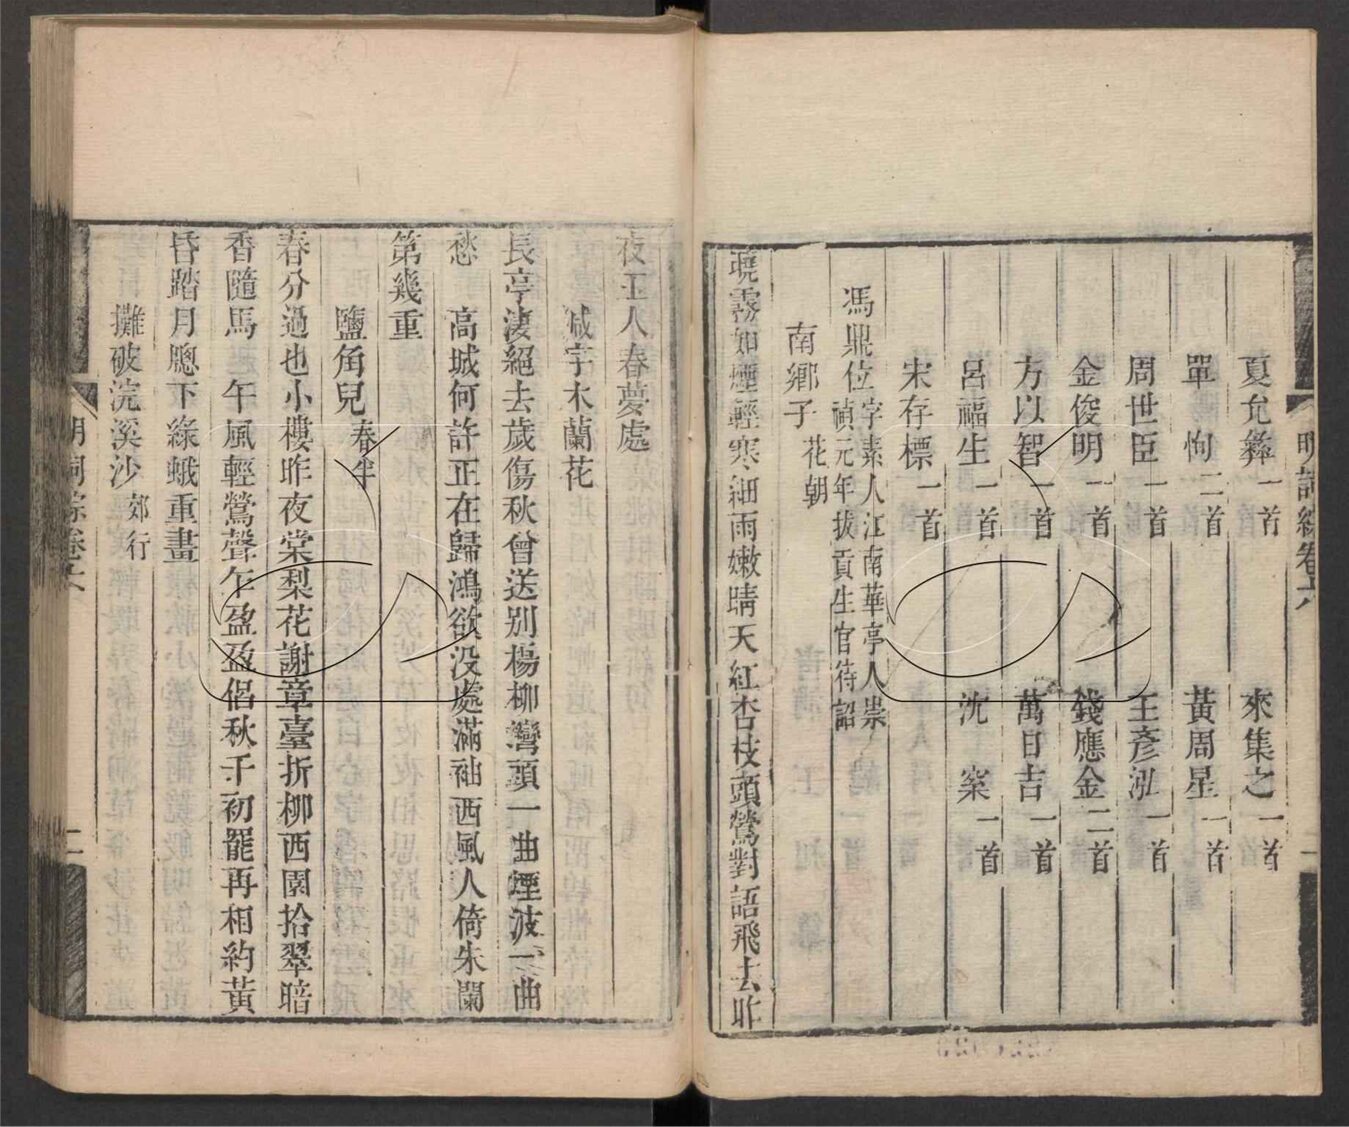 明詞綜卷六
夏允彝一首 來集之一首
單恂二首 黃周星一首
周世臣一首 王彥泓一首
金俊明一首 錢應金二首
方以智一首 萬日吉一首
呂福生一首 沈榮一首
宋存標一首
馮鼎位字素人江南華亭人崇禎元年拔貢生官待詔
南鄉子花朝
曉霧如煙輕寒細雨嫩晴天紅杏枝頭鶯對語飛去昨
夜玉人春夢處
減字木蘭花
長亭淒絕去歲傷秋曾送別楊柳灣頭一曲煙波一曲
愁 高城何許正在歸鴻欲沒處滿袖西風人倚朱闌
第幾重
鹽角兒春半
春分過也小樓昨夜棠梨花謝章臺折柳西園拾翠暗
香隨馬 午風輕鶯聲乍盈盈侶秋千初罷再相約黃
昏踏月牕下綠蛾重畫
攤破浣溪沙郊行
明詞綜卷六 二